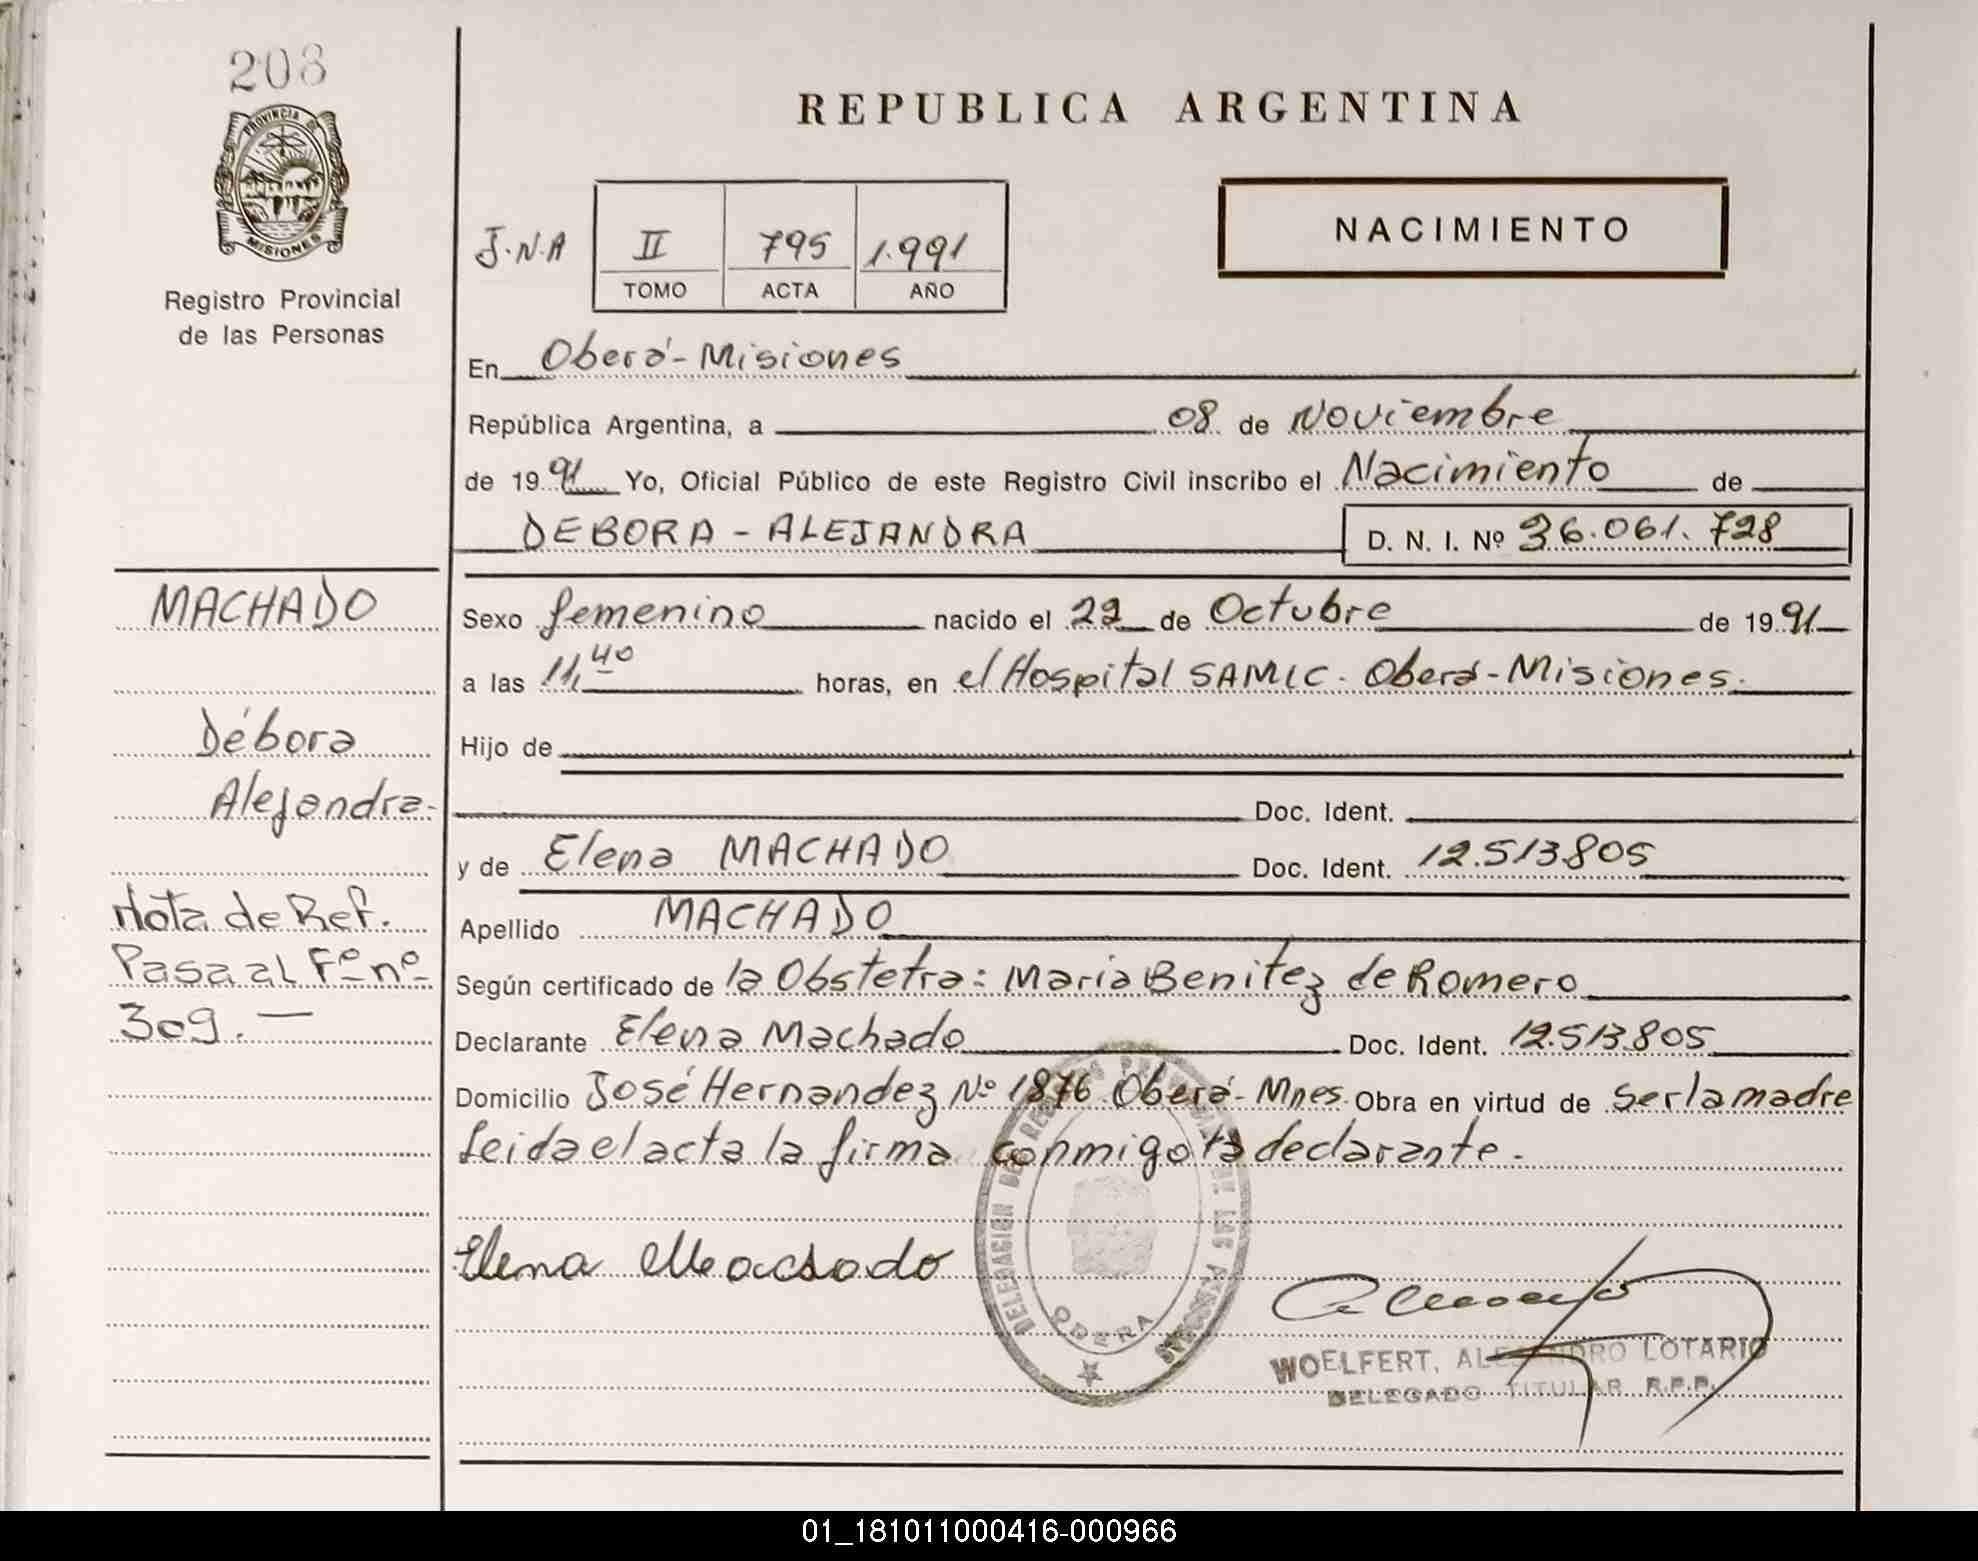 208
PROVINCIA DE
MISIONES
Registro Provincial
de las Personas
MACHADO
Débora
Alejandra-
Nota de Ref.
Pasa al Fº nº
309.—
REPUBLICA ARGENTINA
J.N.A II 795 1.991
TOMO ACTA AÑO
NACIMIENTO
En Oberá - Misiones
República Argentina, a 08 de Noviembre
de 19 91 Yo, Oficial Público de este Registro Civil inscribo el Nacimiento de
DEBORA - ALEJANDRA D. N. I. Nº 36.061.728
Sexo femenino nacido el 22 de Octubre de 19 91
a las 11,40 horas, en el Hospital SAMIC - Oberá - Misiones.
Hijo de
Doc. Ident.
y de Elena MACHADO Doc. Ident. 12.513.805
Apellido MACHADO
Según certificado de la Obstetra: Maria Benitez de Romero
Declarante Elena Machado Doc. Ident. 12.513.805
Domicilio José Hernandez Nº 1876 Oberá - Mnes. Obra en virtud de ser la madre
Leida el acta la firma conmigo la declarante.-
Elena Machado
DELEGACION DEL REGISTRO PROVINCIAL DE LAS PERSONAS
OBERA
WOELFERT, ALEJANDRO LOTARIO
DELEGADO TITULAR R.P.P.
01_181011000416-000966